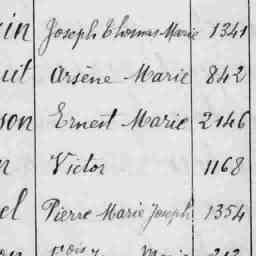 in Joseph Thomas Marie 1341
uit Arsène Marie 842
son Ernest Marie 2146
n Victor 1168
el Pierre Marie Joseph 1354